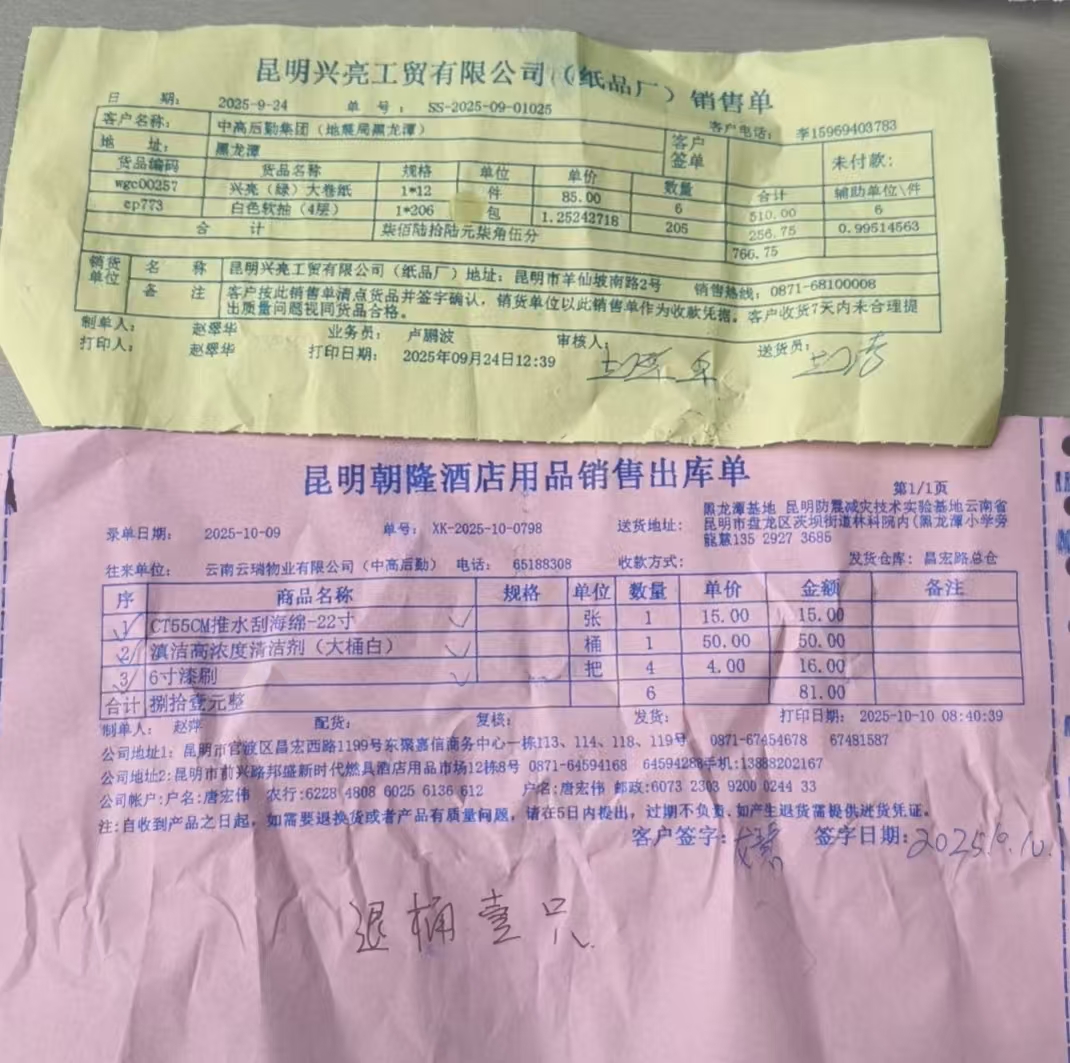 昆明兴亮工贸有限公司（纸品厂）销售单
日 期： 2025-9-24 单 号： SS-2025-09-01025 客户电话：李15969403783
客户名称： 中高后勤集团（地震局黑龙潭） 客户签单 未付款：
地 址： 黑龙潭
货品编码 货品名称 规格 单位 单价 数量 合计 辅助单位\件
wgc00257 兴亮（绿）大卷纸 1*12 件 85.00 6 510.00 6
cp773 白色软抽（4层） 1*206 包 1.25242718 205 256.75 0.99514563
合 计 柒佰陆拾陆元柒角伍分 766.75
销货单位 名 称 昆明兴亮工贸有限公司（纸品厂）地址：昆明市羊仙坡南路2号 销售热线：0871-68100008
备 注 客户按此销售单清点货品并签字确认，销货单位以此销售单作为收款凭据。客户收货7天内未合理提
出质量问题视同货品合格。
制单人： 赵翠华 业务员： 卢鹏波 审核人： 送货员：
打印人： 赵翠华 打印日期： 2025年09月24日12:39
昆明朝隆酒店用品销售出库单
第1/1页
录单日期： 2025-10-09 单号： XK-2025-10-0798 送货地址： 黑龙潭基地 昆明防震减灾技术实验基地云南省
昆明市盘龙区茨坝街道林科院内(黑龙潭小学旁
龍慧135 2927 3685
往来单位： 云南云瑞物业有限公司（中高后勤） 电话： 65188308 收款方式： 发货仓库： 昌宏路总仓
序 商品名称 规格 单位 数量 单价 金额 备注
1 CT55CM推水刮海绵-22寸 张 1 15.00 15.00
2 滇洁高浓度清洁剂（大桶白） 桶 1 50.00 50.00
3 6寸漆刷 把 4 4.00 16.00
合计 捌拾壹元整 6 81.00
制单人： 赵萍 配货： 复核： 发货： 打印日期： 2025-10-10 08:40:39
公司地址1： 昆明市官渡区昌宏西路1199号东聚嘉信商务中心一栋113、114、118、119号 0871-67454678 67481587
公司地址2:昆明市前兴路邦盛新时代燃具酒店用品市场12栋8号 0871-64594168 64594288手机:13888202167
公司帐户:户名:唐宏伟 农行:6228 4808 6025 6136 612 户名:唐宏伟 邮政:6073 2303 9200 0244 33
注:自收到产品之日起，如需要退换货或者产品有质量问题，请在5日内提出，过期不负责.如产生退货需提供进货凭证。
客户签字: 签字日期:2025.10.10.
退桶壹只